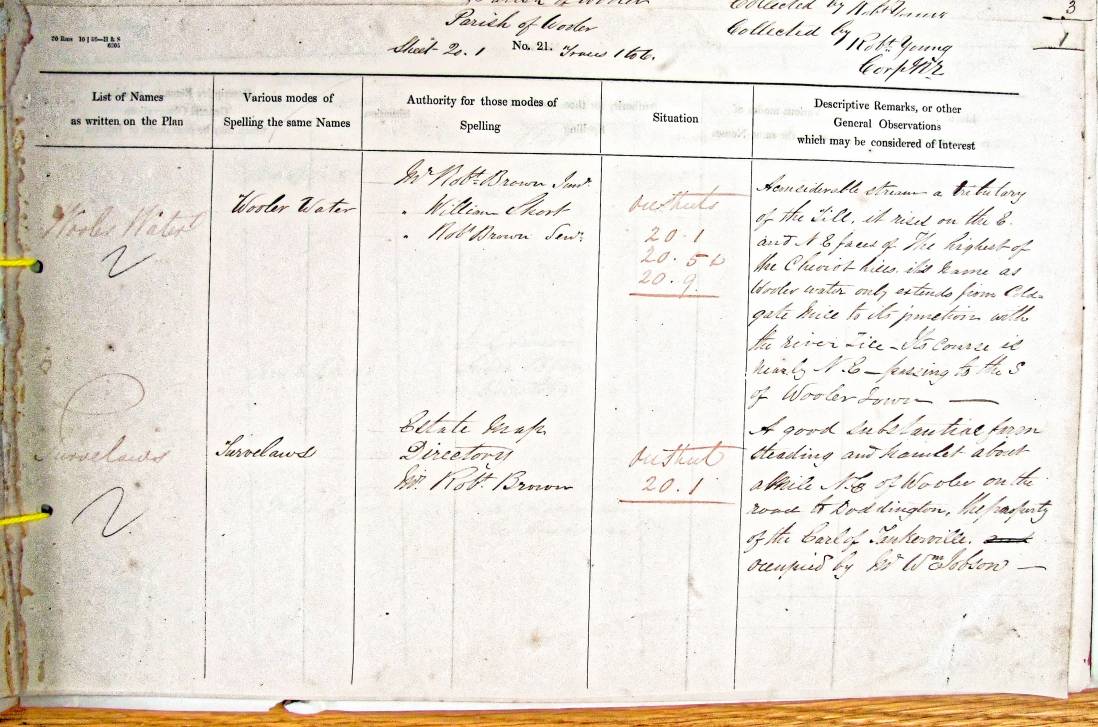 Parish of Wooler
Collected by
3
Parish of Wooler
Collected by
Robt. Young
Corpl RE
1
Sheet 20.1
No. 21.
Traces 1 to 6.
List of Names
as written on the Plan
Various modes of
Spelling the same Names
Authority for those modes of
Spelling
Situation
Descriptive Remarks, or other
General Observations
which may be considered of Interest
Wooler Water
Wooler Water
Mr. Robt. Brown Junr.
" William Short
" Robt Brown Senr.
20.1
20.5
20.9
A considerable stream a tributary
of the Till, it rises on the E.
and N E faces of The highest of
the Cheviot hills. its name as
Wooler water only extends from Cold-
gate Mill to its junction with
the river Till – Its course is
nearly N.E – passing to the S
of Wooler Town —
Turvelaws
Turvelaws
Estate Map
Directory
Mr. Robt. Brown
20.1
A good substantial farm
steading and hamlet about
a Mile N.E of Wooler on the
road to Doddington, the property
of the Earl of Tankerville.
occupied by Mr Wm Jobson —